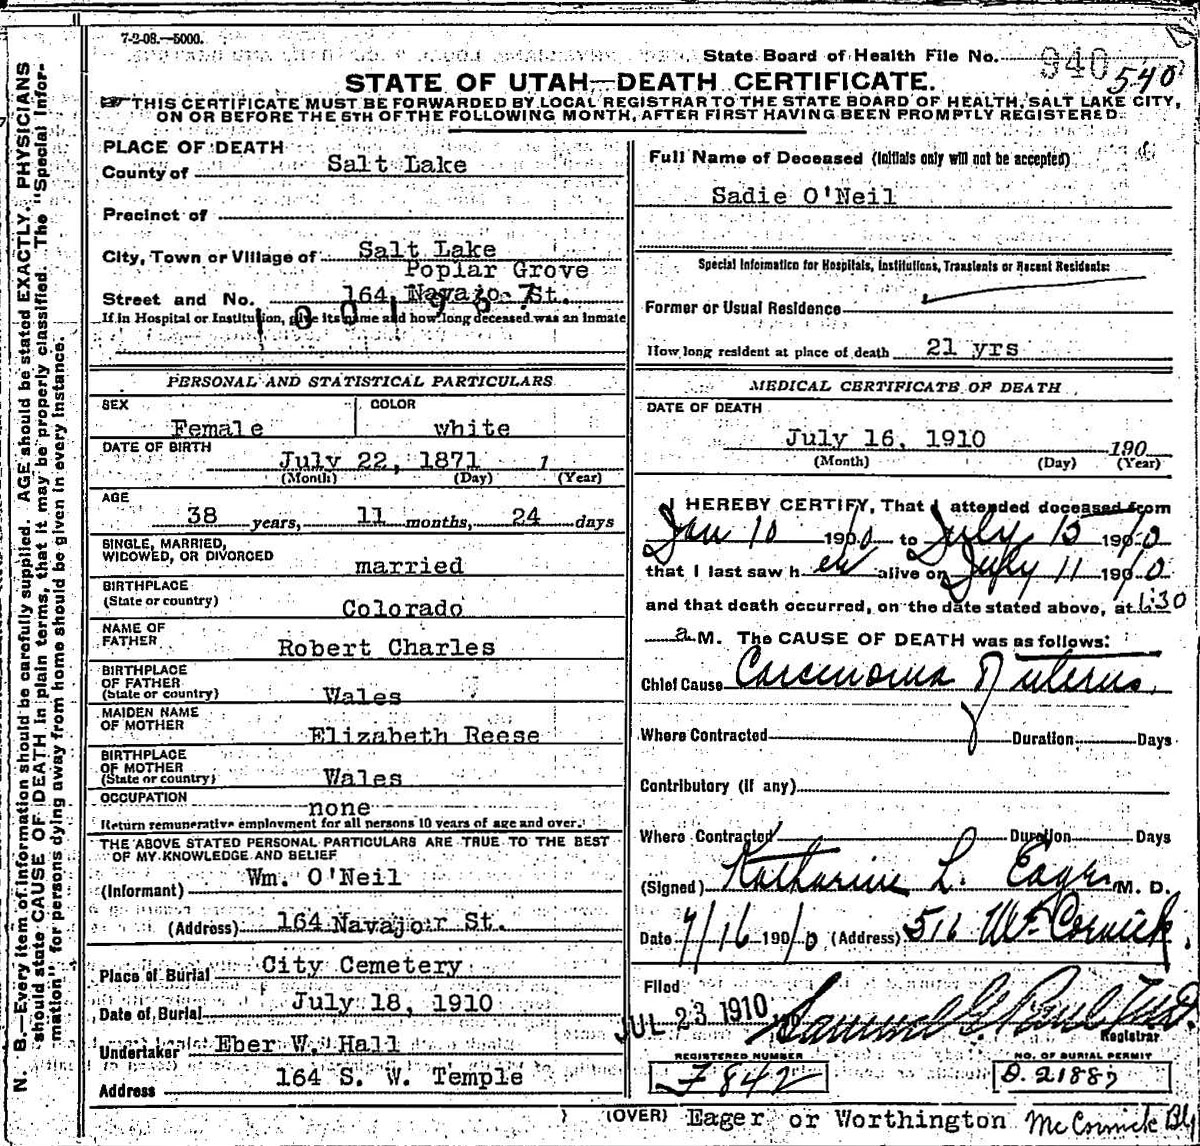 7-2-08.—5000.
State Board of Health File No. 940 540
STATE OF UTAH—DEATH CERTIFICATE.
THIS CERTIFICATE MUST BE FORWARDED BY LOCAL REGISTRAR TO THE STATE BOARD OF HEALTH, SALT LAKE CITY,
ON OR BEFORE THE 5TH OF THE FOLLOWING MONTH, AFTER FIRST HAVING BEEN PROMPTLY REGISTERED.
N. B.—Every item of information should be carefully supplied. AGE should be stated EXACTLY. PHYSICIANS
should state CAUSE OF DEATH in plain terms, that it may be properly classified. The "Special Infor-
mation" for persons dying away from home should be given in every instance.
PLACE OF DEATH
County of Salt Lake
Precinct of
City, Town or Village of Salt Lake
Poplar Grove
Street and No. 164 Navajo St.
If in Hospital or Institution, give its name and how long deceased was an inmate
PERSONAL AND STATISTICAL PARTICULARS
SEX COLOR
Female white
DATE OF BIRTH
July 22, 1871 1
(Month) (Day) (Year)
AGE
38 years, 11 months, 24 days
SINGLE, MARRIED,
WIDOWED, OR DIVORCED
married
BIRTHPLACE
(State or country)
Colorado
NAME OF
FATHER
Robert Charles
BIRTHPLACE
OF FATHER
(State or country)
Wales
MAIDEN NAME
OF MOTHER
Elizabeth Reese
BIRTHPLACE
OF MOTHER
(State or country)
Wales
OCCUPATION
none
Return remunerative employment for all persons 10 years of age and over.
THE ABOVE STATED PERSONAL PARTICULARS ARE TRUE TO THE BEST
OF MY KNOWLEDGE AND BELIEF
(Informant) Wm. O'Neil
(Address) 164 Navajo St.
Place of Burial City Cemetery
Date of Burial July 18, 1910
Undertaker Eber W. Hall
Address 164 S. W. Temple
Full Name of Deceased (Initials only will not be accepted)
Sadie O'Neil
Special Information for Hospitals, Institutions, Transients or Recent Residents:
Former or Usual Residence
How long resident at place of death 21 yrs
MEDICAL CERTIFICATE OF DEATH
DATE OF DEATH
July 16, 1910 190
(Month) (Day) (Year)
I HEREBY CERTIFY, That I attended deceased from
Jan 10 1910 to July 15 1910
that I last saw her alive on July 11 1910
and that death occurred, on the date stated above, at 1:30
a M. The CAUSE OF DEATH was as follows:
Chief Cause Carcinoma of uterus.
Where Contracted Duration Days
Contributory (if any)
Where Contracted Duration Days
(Signed) Katharine L. Eager M. D.
Date 7/16 1910 (Address) 516 McCornick
Filed
JUL 23 1910 Samuel G. Paul M.D.
Registrar
REGISTERED NUMBER NO. OF BURIAL PERMIT
7842 D. 21887
(OVER) Eager or Worthington McCornick Bl